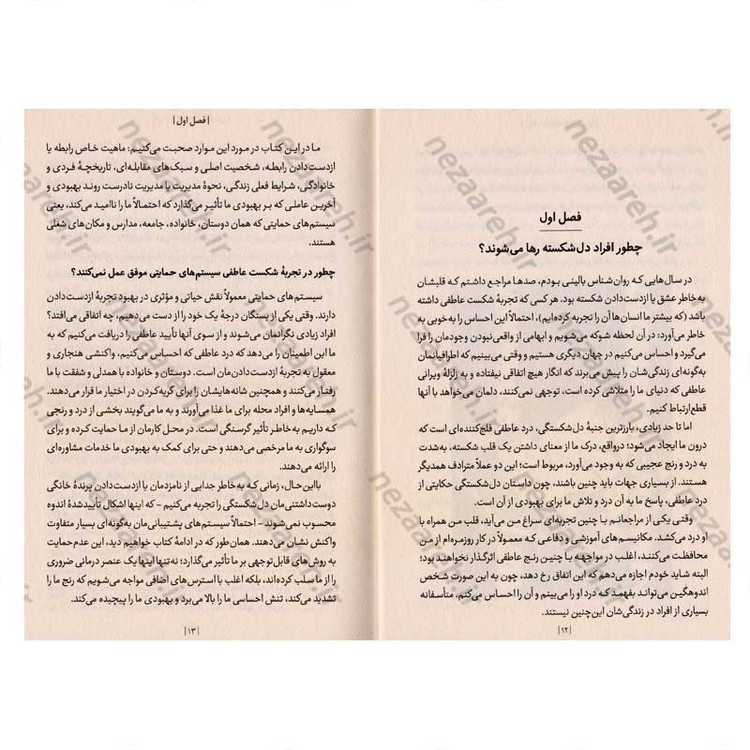 فصل اول
چطور افراد دل‌شکسته رها می‌شوند؟
در سال‌هایی که روان‌شناس بالینی بودم، صدها مراجع داشتم که قلبشان
به خاطر عشق یا ازدست‌دادن شکسته بود. هر کسی که تجربهٔ شکست عاطفی داشته
باشد (که بیشتر ما انسان‌ها آن را تجربه کرده‌ایم)، احتمالاً این احساس را به‌خوبی به
خاطر می‌آورد؛ در آن لحظه شوکه می‌شویم و ابهامی از واقعی‌نبودن وجودمان را فرا
می‌گیرد و احساس می‌کنیم در جهان دیگری هستیم و وقتی می‌بینیم که اطرافیانمان
به‌گونه‌ای زندگی‌شان را پیش می‌برند که انگار هیچ اتفاقی نیفتاده و به زلزلهٔ ویرانی
عاطفی که دنیای ما را متلاشی کرده است، توجهی نمی‌کنند، دلمان می‌خواهد با آنها
قطع‌ارتباط کنیم.
اما تا حد زیادی، بارزترین جنبهٔ دل‌شکستگی، درد عاطفی فلج‌کننده‌ای است که
درون ما ایجاد می‌شود؛ درواقع، درک ما از معنای داشتن یک قلب شکسته، به‌شدت
به درد و رنج عجیبی که به وجود می‌آورد، مربوط است؛ این دو عملاً مترادف همدیگر
هستند. از بسیاری جهات باید چنین باشند، چون داستان دل‌شکستگی حکایتی از
درد عاطفی، پاسخ ما به آن درد و تلاش ما برای بهبودی از آن است.
وقتی یکی از مراجعانم با چنین تجربه‌ای سراغ من می‌آید، قلب من همراه با
او درد می‌کشد. مکانیسم‌های آموزشی و دفاعی که معمولاً در کار روزمره‌ام از من
محافظت می‌کنند، اغلب در مواجهه با چنین رنج عاطفی اثرگذار نخواهند بود؛
البته شاید خودم اجازه می‌دهم که این اتفاق رخ دهد، چون به این صورت شخص
اندوهگین می‌تواند بفهمد که درد او را می‌بینم و آن را احساس می‌کنم، متأسفانه
بسیاری از افراد در زندگی‌شان این‌چنین نیستند.
|۱۲|
| فصل اول |
ما در این کتاب در مورد این موارد صحبت می‌کنیم: ماهیت خاص رابطه یا
ازدست‌دادن رابطه، شخصیت اصلی و سبک‌های مقابله‌ای، تاریخچهٔ فردی و
خانوادگی، شرایط فعلی زندگی، نحوهٔ مدیریت یا مدیریت نادرست روند بهبودی و
آخرین عاملی که بر بهبودی ما تأثیر می‌گذارد که احتمالاً ما را ناامید می‌کند، یعنی
سیستم‌های حمایتی که همان دوستان، خانواده، جامعه، مدارس و مکان‌های شغلی
هستند.
چطور در تجربهٔ شکست عاطفی سیستم‌های حمایتی موفق عمل نمی‌کنند؟
سیستم‌های حمایتی معمولاً نقش حیاتی و مؤثری در بهبود تجربهٔ ازدست‌دادن
دارند. وقتی یکی از بستگان درجهٔ یک خود را از دست می‌دهیم، چه اتفاقی می‌افتد؟
افراد زیادی نگرانمان می‌شوند و از سوی آنها تأیید عاطفی را دریافت می‌کنیم که به
ما این اطمینان را می‌دهد که درد عاطفی که احساس می‌کنیم، واکنشی هنجاری و
معقول به تجربهٔ ازدست‌دادن‌مان است. دوستان و خانواده با همدلی و شفقت با ما
رفتار می‌کنند و همچنین شانه‌هایشان را برای گریه‌کردن در اختیار ما قرار می‌دهند.
همسایه‌ها و افراد محله برای ما غذا می‌آورند و به ما می‌گویند بخشی از درد و رنجی
که داریم به‌خاطر تأثیر گرسنگی است. در محل کارمان از ما حمایت کرده و برای
سوگواری به ما مرخصی می‌دهند و حتی برای کمک به بهبودی ما خدمات مشاوره‌ای
را ارائه می‌دهند.
بااین‌حال، زمانی که به‌خاطر جدایی از نامزدمان یا ازدست‌دادن پرندهٔ خانگی
دوست‌داشتنی‌مان دل‌شکستگی را تجربه می‌کنیم – که اینها اشکال تأییدشدهٔ اندوه
محسوب نمی‌شوند – احتمالاً سیستم‌های پشتیبانی‌مان به‌گونه‌ای بسیار متفاوت
واکنش نشان می‌دهند. همان‌طور که در ادامهٔ کتاب خواهیم دید، این عدم‌حمایت
به روش‌های قابل‌توجهی بر ما تأثیر می‌گذارد؛ نه‌تنها اینها یک عنصر درمانی ضروری
را از ما سلب کرده‌اند، بلکه اغلب با استرس‌های اضافی مواجه می‌شویم که رنج ما را
تشدید می‌کند، تنش احساسی ما را بالا می‌برد و بهبودی ما را پیچیده می‌کند.
|۱۳|
nezaareh.ir